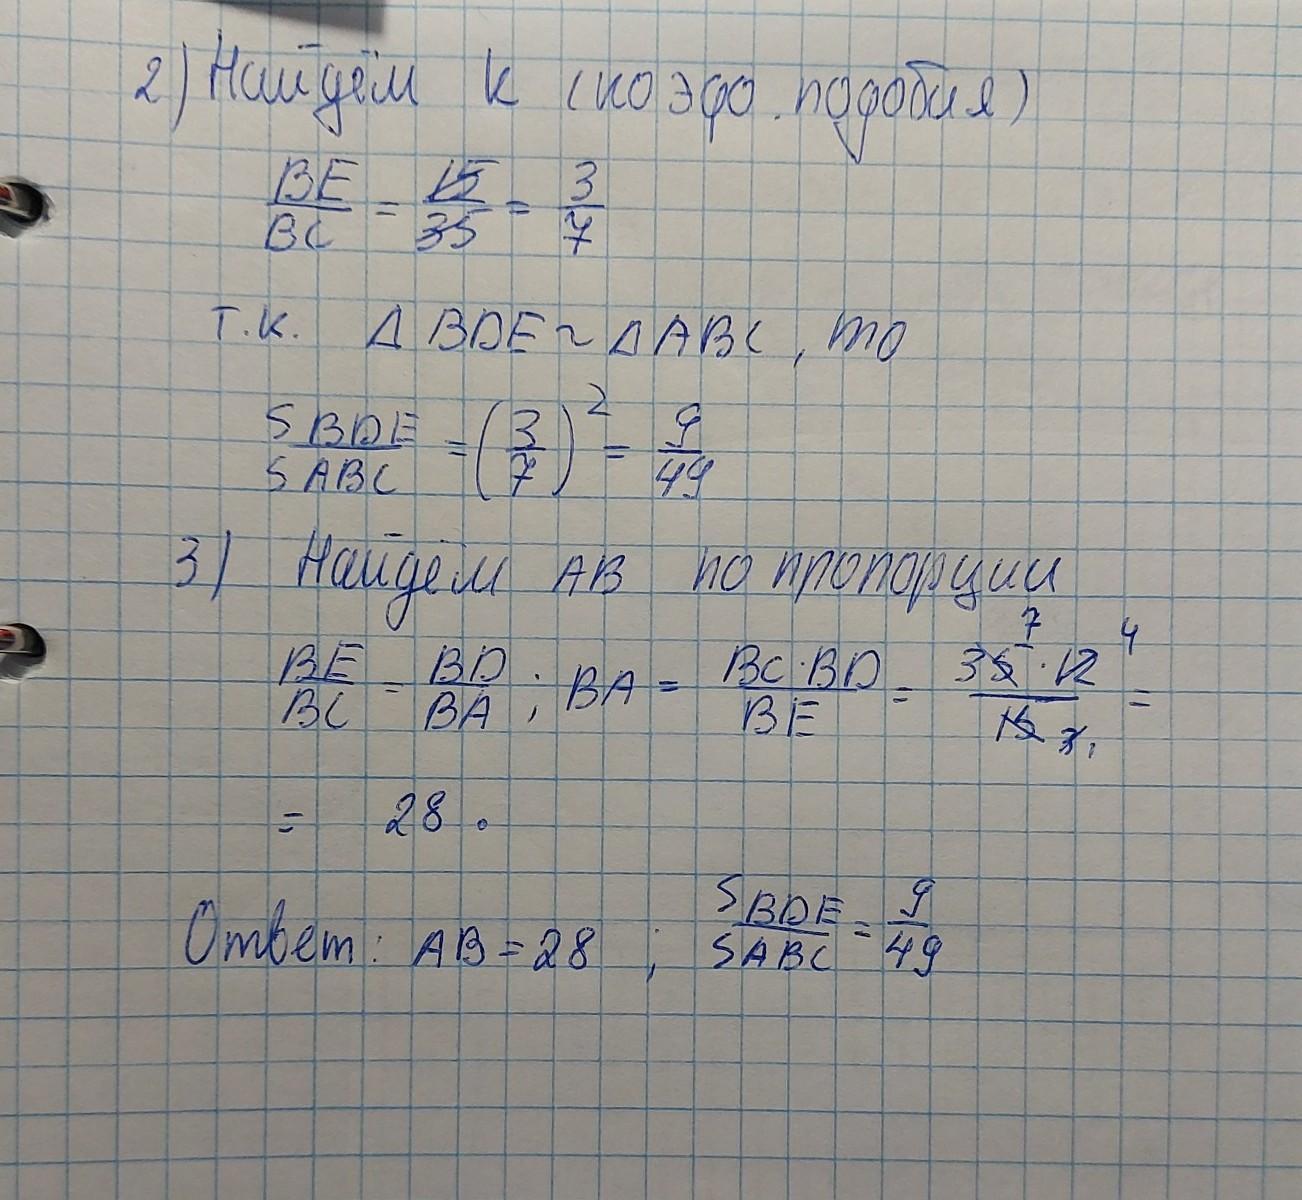 2) Найдём k (коэф. подобия)
BE/BC = 15/35 = 3/7
т.к. Δ BDE ~ Δ ABC, то
S BDE / S ABC = (3/7)² = 9/49
3) Найдём AB по пропорции
BE/BC = BD/BA ; BA = BC·BD/BE = 35 7 · 12 4 / 15 3 1 =
= 28.
Ответ: AB = 28 ; S BDE / S ABC = 9/49